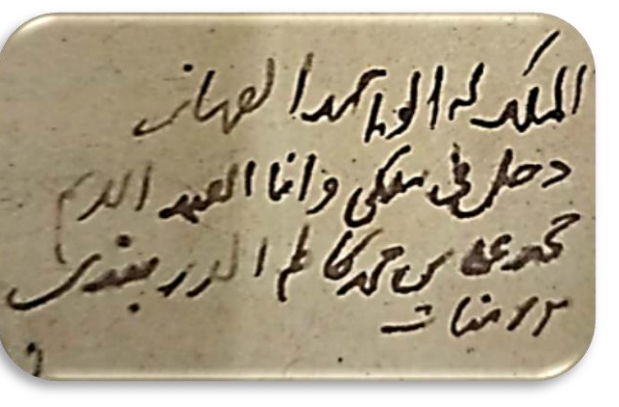 الملك لله الواحد القهار
دخل في ملكي وانا العبد
محمد علي بن محمد كاظم الدربندي
منات